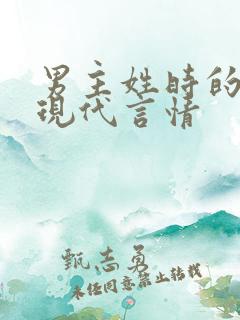 男主姓時的
現代言情
甄志勇
未经同意禁止转载